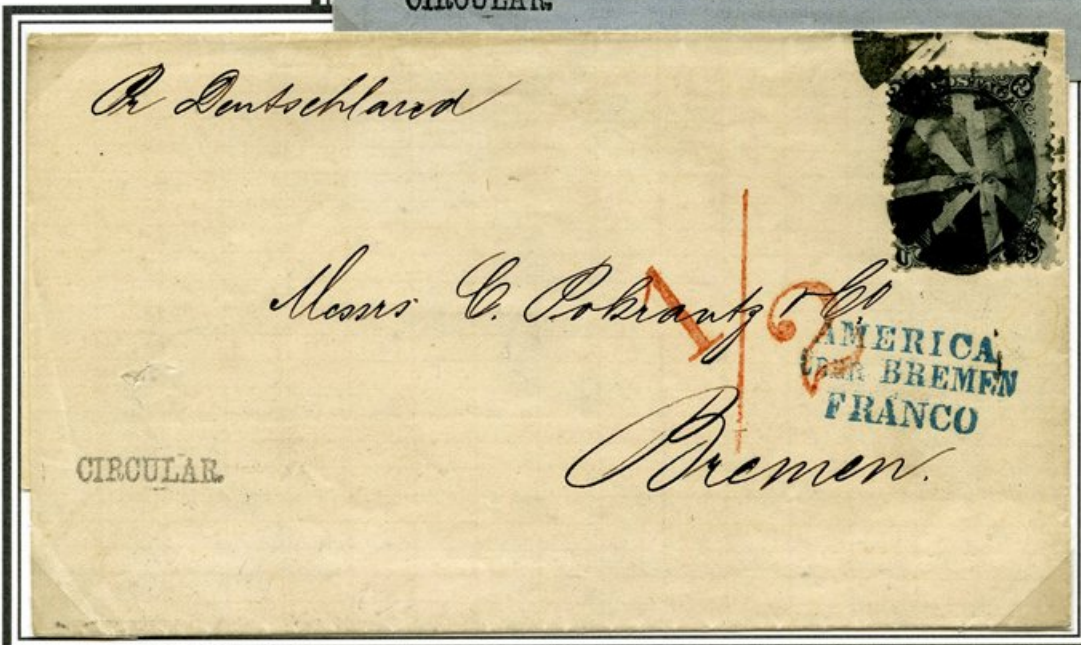 CIRCULAR.
Pr Deutschland
Messrs C. Pokrantz & Co
1/2
AMERICA
ÜBER BREMEN
FRANCO
Bremen.
CIRCULAR.
2
U S